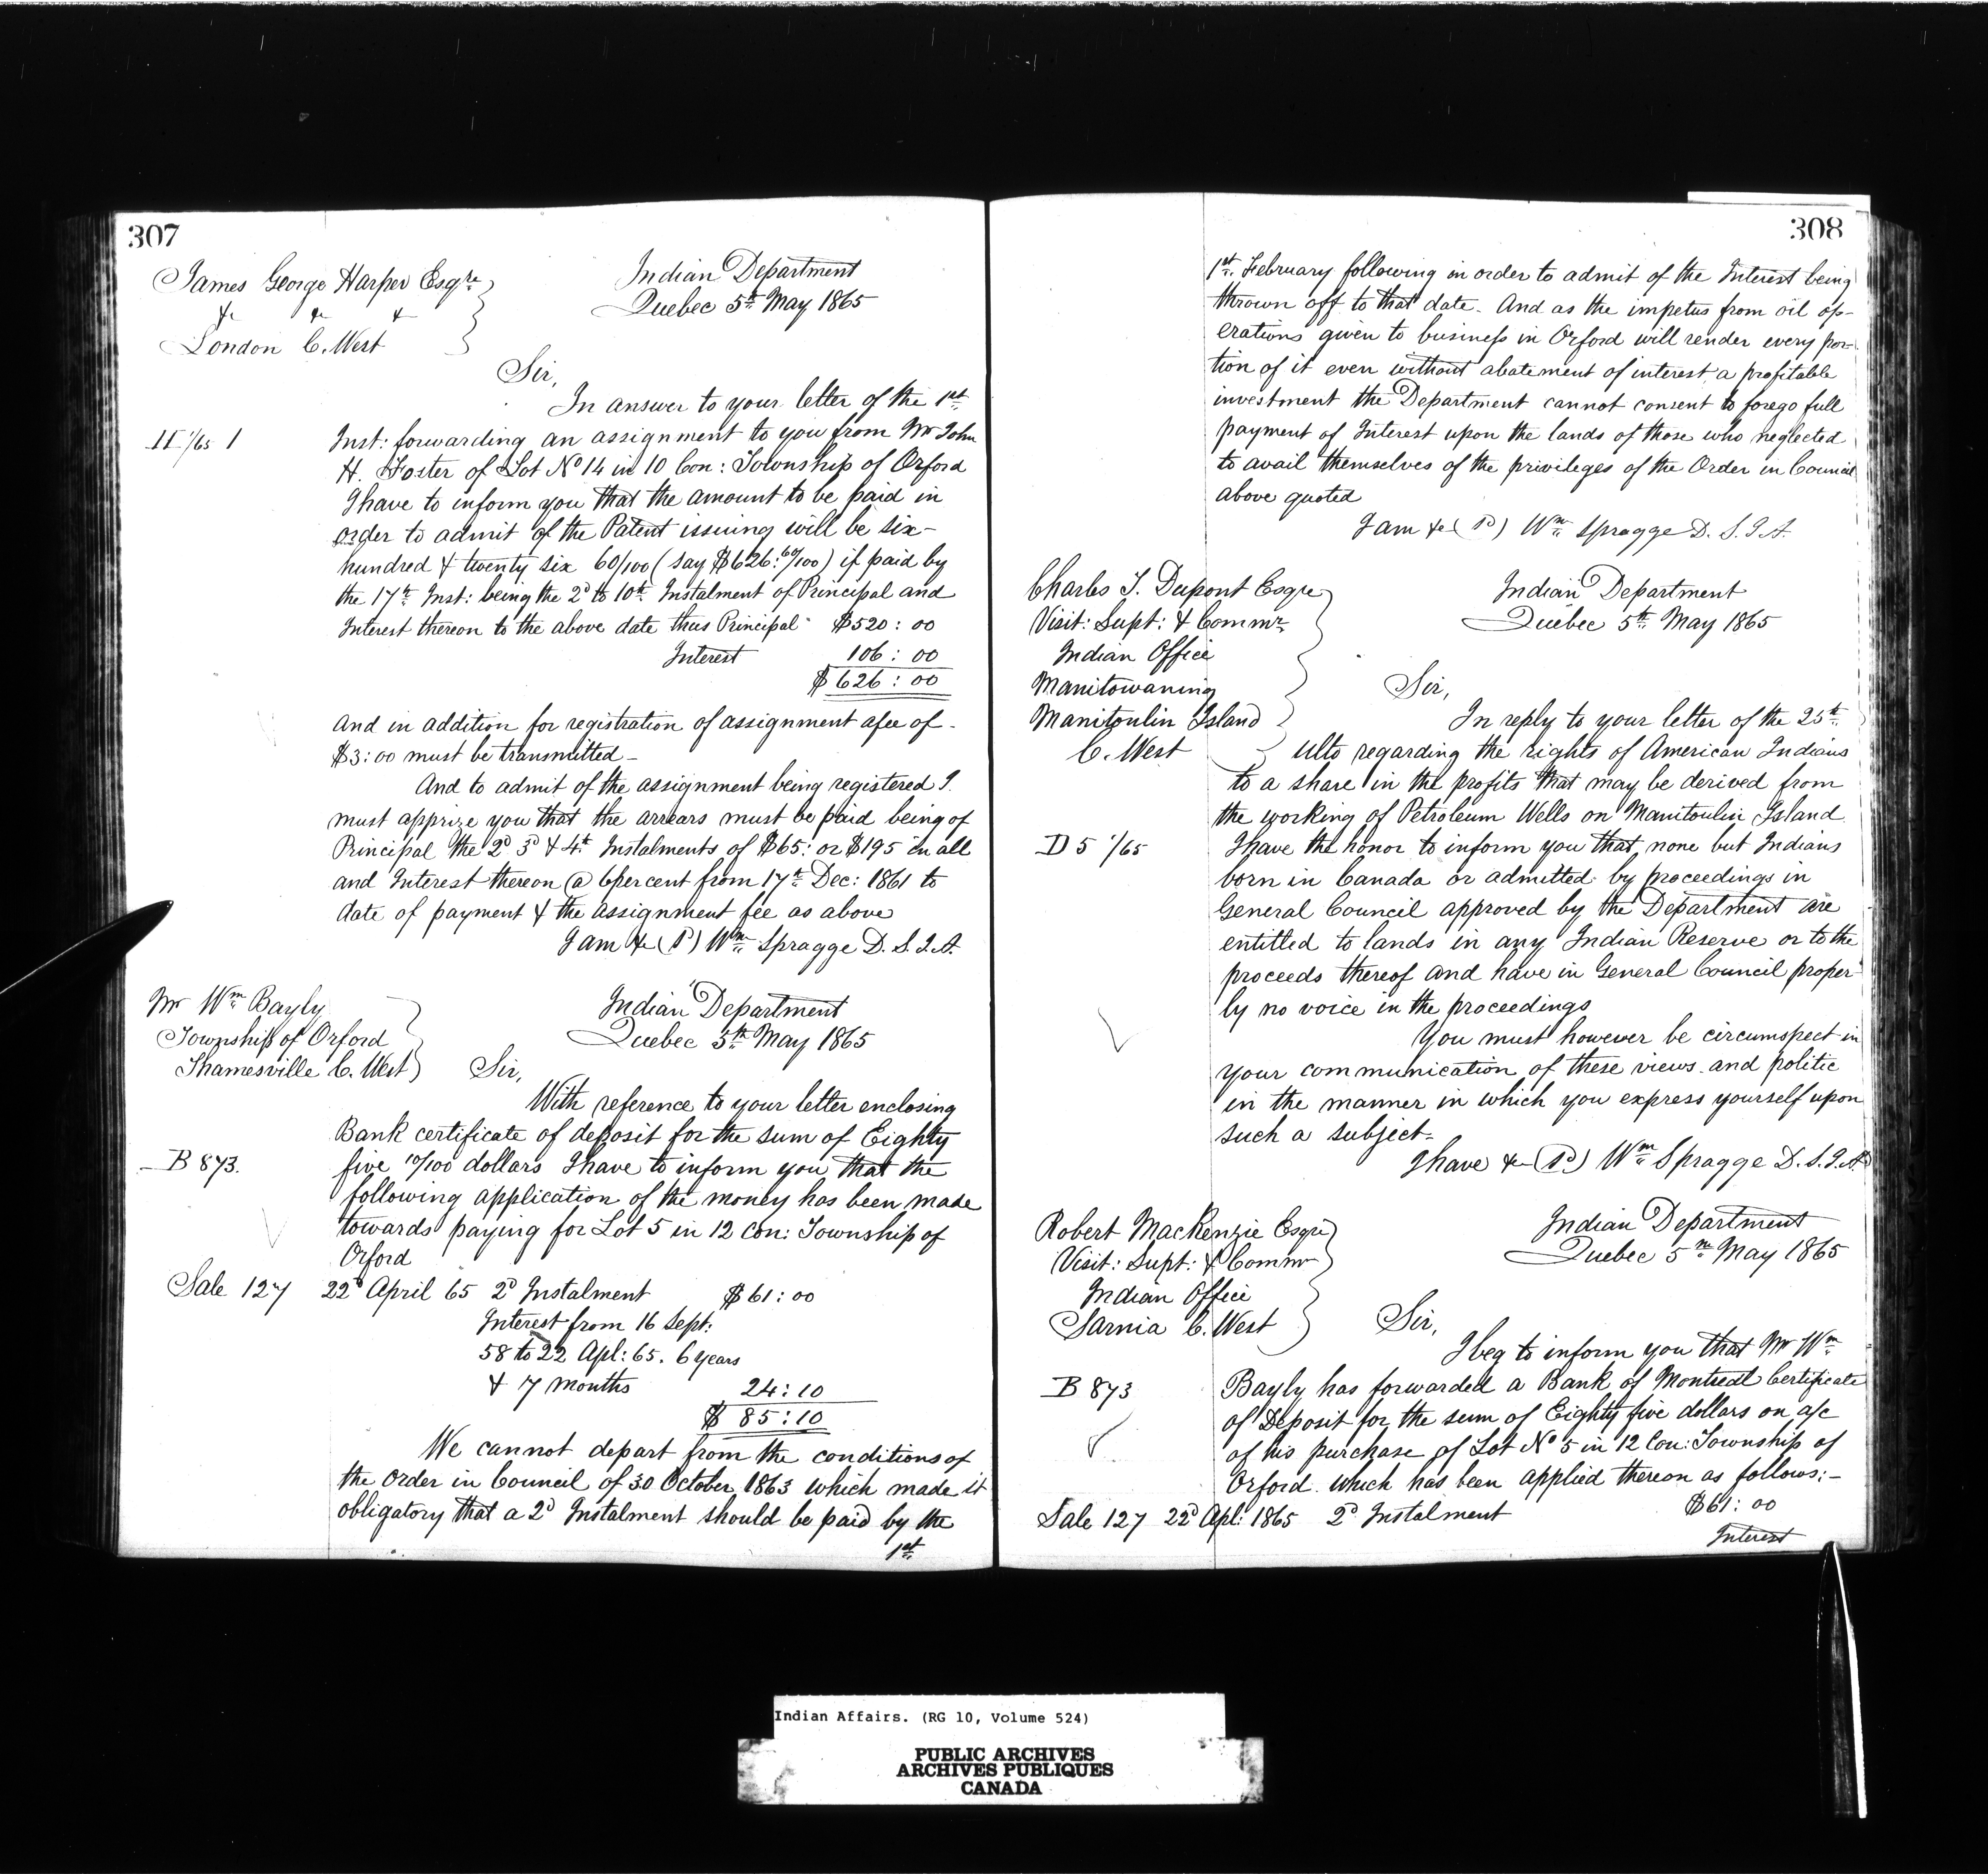 307
James George Harper Esqre
& & &
London C. West
Indian Department
Quebec 5th May 1865
Sir,
In answer to your letter of the 1st
Inst: forwarding an assignment to you from Mr John
H. Foster of Lot No 14 in 10 Con: Township of Orford
I have to inform you that the amount to be paid in
order to admit of the Patent issuing will be six-
hundred & twenty six 60/100 (say $626:60/100) if paid by
the 17th Inst: being the 2d to 10th Instalment of Principal and
Interest thereon to the above date thus Principal $520:00
Interest 106:00
$626:00
And in addition for registration of assignment a fee of -
$3:00 must be transmitted -
And to admit of the assignment being registered I
must apprize you that the arrears must be paid being of
Principal the 2d 3d & 4th Instalments of $65: or $195 in all
and Interest thereon @ 6 per cent from 17th Dec: 1861 to
date of payment & the assignment fee as above
I am &c (sd) Wm Spragge D. S. I. A.
Mr Wm Bayly
Township of Orford
Thamesville C. West
Indian Department
Quebec 5th May 1865
Sir,
With reference to your letter enclosing
Bank certificate of deposit for the sum of Eighty
B 873. five 10/100 dollars I have to inform you that the
following application of the money has been made
towards paying for Lot 5 in 12 Con: Township of
Orford
Sale 127 22d April 65 2d Instalment $61:00
Interest from 16 Sept:
58 to 22 Apl: 65. 6 years
& 7 months 24:10
$85:10
We cannot depart from the conditions of
the Order in Council of 30 October 1863 which made it
obligatory that a 2d Instalment should be paid by the
1st
308
1st February following in order to admit of the Interest being
thrown off to that date. And as the impetus from oil op-
erations given to business in Orford will render every por-
tion of it even without abatement of interest a profitable
investment the Department cannot consent to forego full
payment of Interest upon the lands of those who neglected
to avail themselves of the privileges of the Order in Council
above quoted
I am &c (sd) Wm Spragge D. S. I. A.
Charles T. Dupont Esqre
Visit: Supt: & Commr
Indian Office
Manitowaning
Manitoulin Island
C. West
Indian Department
Quebec 5th May 1865
Sir,
In reply to your letter of the 25th
Ulto regarding the rights of American Indians
to a share in the profits that may be derived from
the working of Petroleum Wells on Manitoulin Island
D 5 1/65 I have the honor to inform you that none but Indians
born in Canada or admitted by proceedings in
General Council approved by the Department are
entitled to lands in any Indian Reserve or to the
proceeds thereof and have in General Council proper-
ly no voice in the proceedings
You must however be circumspect in
your communication of these views and politic
in the manner in which you express yourself upon
such a subject -
I have &c (sd) Wm Spragge D. S. I. A.
Robert MacKenzie Esqre
Visit: Supt: & Commr
Indian Office
Sarnia C. West
Indian Department
Quebec 5th May 1865
Sir,
I beg to inform you that Mr Wm
B 873 Bayly has forwarded a Bank of Montreal Certificate
of Deposit for the sum of Eighty five dollars on a/c
of his purchase of Lot No 5 in 12 Con: Township of
Orford which has been applied thereon as follows:-
Sale 127 22d Apl: 1865 2d Instalment $61:00
Interest
Indian Affairs. (RG 10, Volume 524)
PUBLIC ARCHIVES
ARCHIVES PUBLIQUES
CANADA